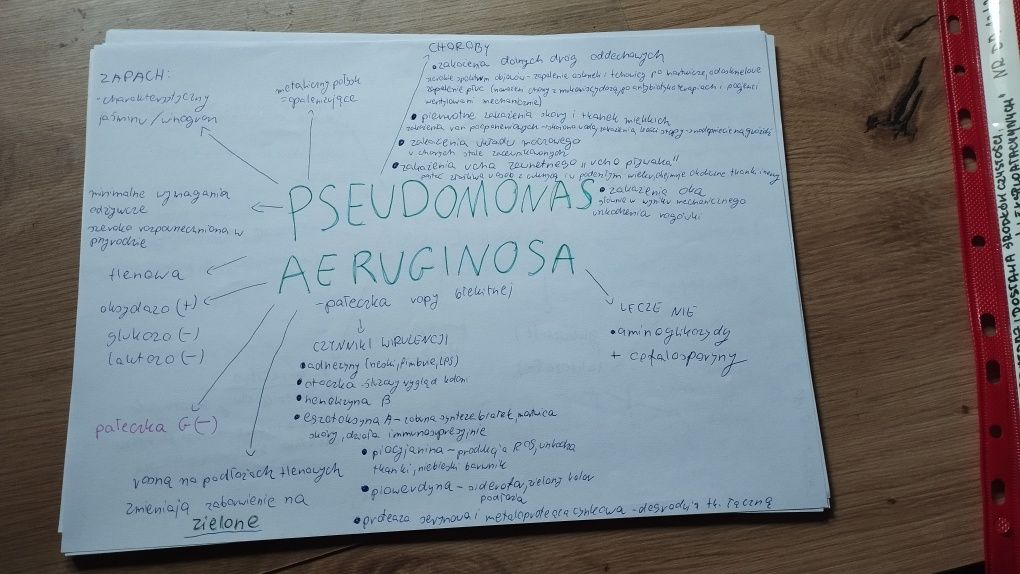 ZAPACH:
- charakterystyczny
jaśminu/winogron
metaliczny połysk
= opalizujące
CHOROBY
• zakażenia dolnych dróg oddechowych
szerokie spektrum objawów - zapalenie oskrzeli i tchawicy po martwicze, odoskrzelowe
zapalenie płuc (narażeni chorzy z mukowiscydozą, po antybiotykoterapiach i pacjenci
wentylowani mechanicznie)
• pierwotne zakażenia skóry i tkanek miękkich
zakażenia ran pooparzeniowych - skażona woda, zakażenia kości stopy → nadepnięcie na gwóźdź
• zakażenia układu moczowego
u chorych stale zacewnikowanych
• zakażenia ucha zewnętrznego "ucho pływaka"
postać złośliwa u osób z cukrzycą i w podeszłym wieku, obejmuje okoliczne tkanki i nerwy
• zakażenia oka
głównie w wyniku mechanicznego
uszkodzenia rogówki
PSEUDOMONAS
AERUGINOSA
- pałeczka ropy błękitnej
minimalne wymagania
odżywcze
szeroko rozpowszechniona w
przyrodzie
tlenowa
oksydazo (+)
glukozo (-)
laktozo (-)
pałeczka G(-)
rosną na podłożach tlenowych
zmieniają zabarwienie na
zielone
CZYNNIKI WIRULENCJI
• adhezyny (rzęski, fimbrie, LPS)
• otoczka śluzowy wygląd kolonii
• hemolizyna β
• egzotoksyna A - hamuje syntezę białek, martwica
skóry, działa immunosupresyjnie
• piocyjanina - produkcja ROS, uszkadza
tkanki, niebieski barwnik
• piowerdyna - siderofor, zielony kolor
podłoża
• proteaza serynowa i metaloproteaza cynkowa - degradacja tk. łączną
LECZENIE
• aminoglikozydy
+ cefalosporyny